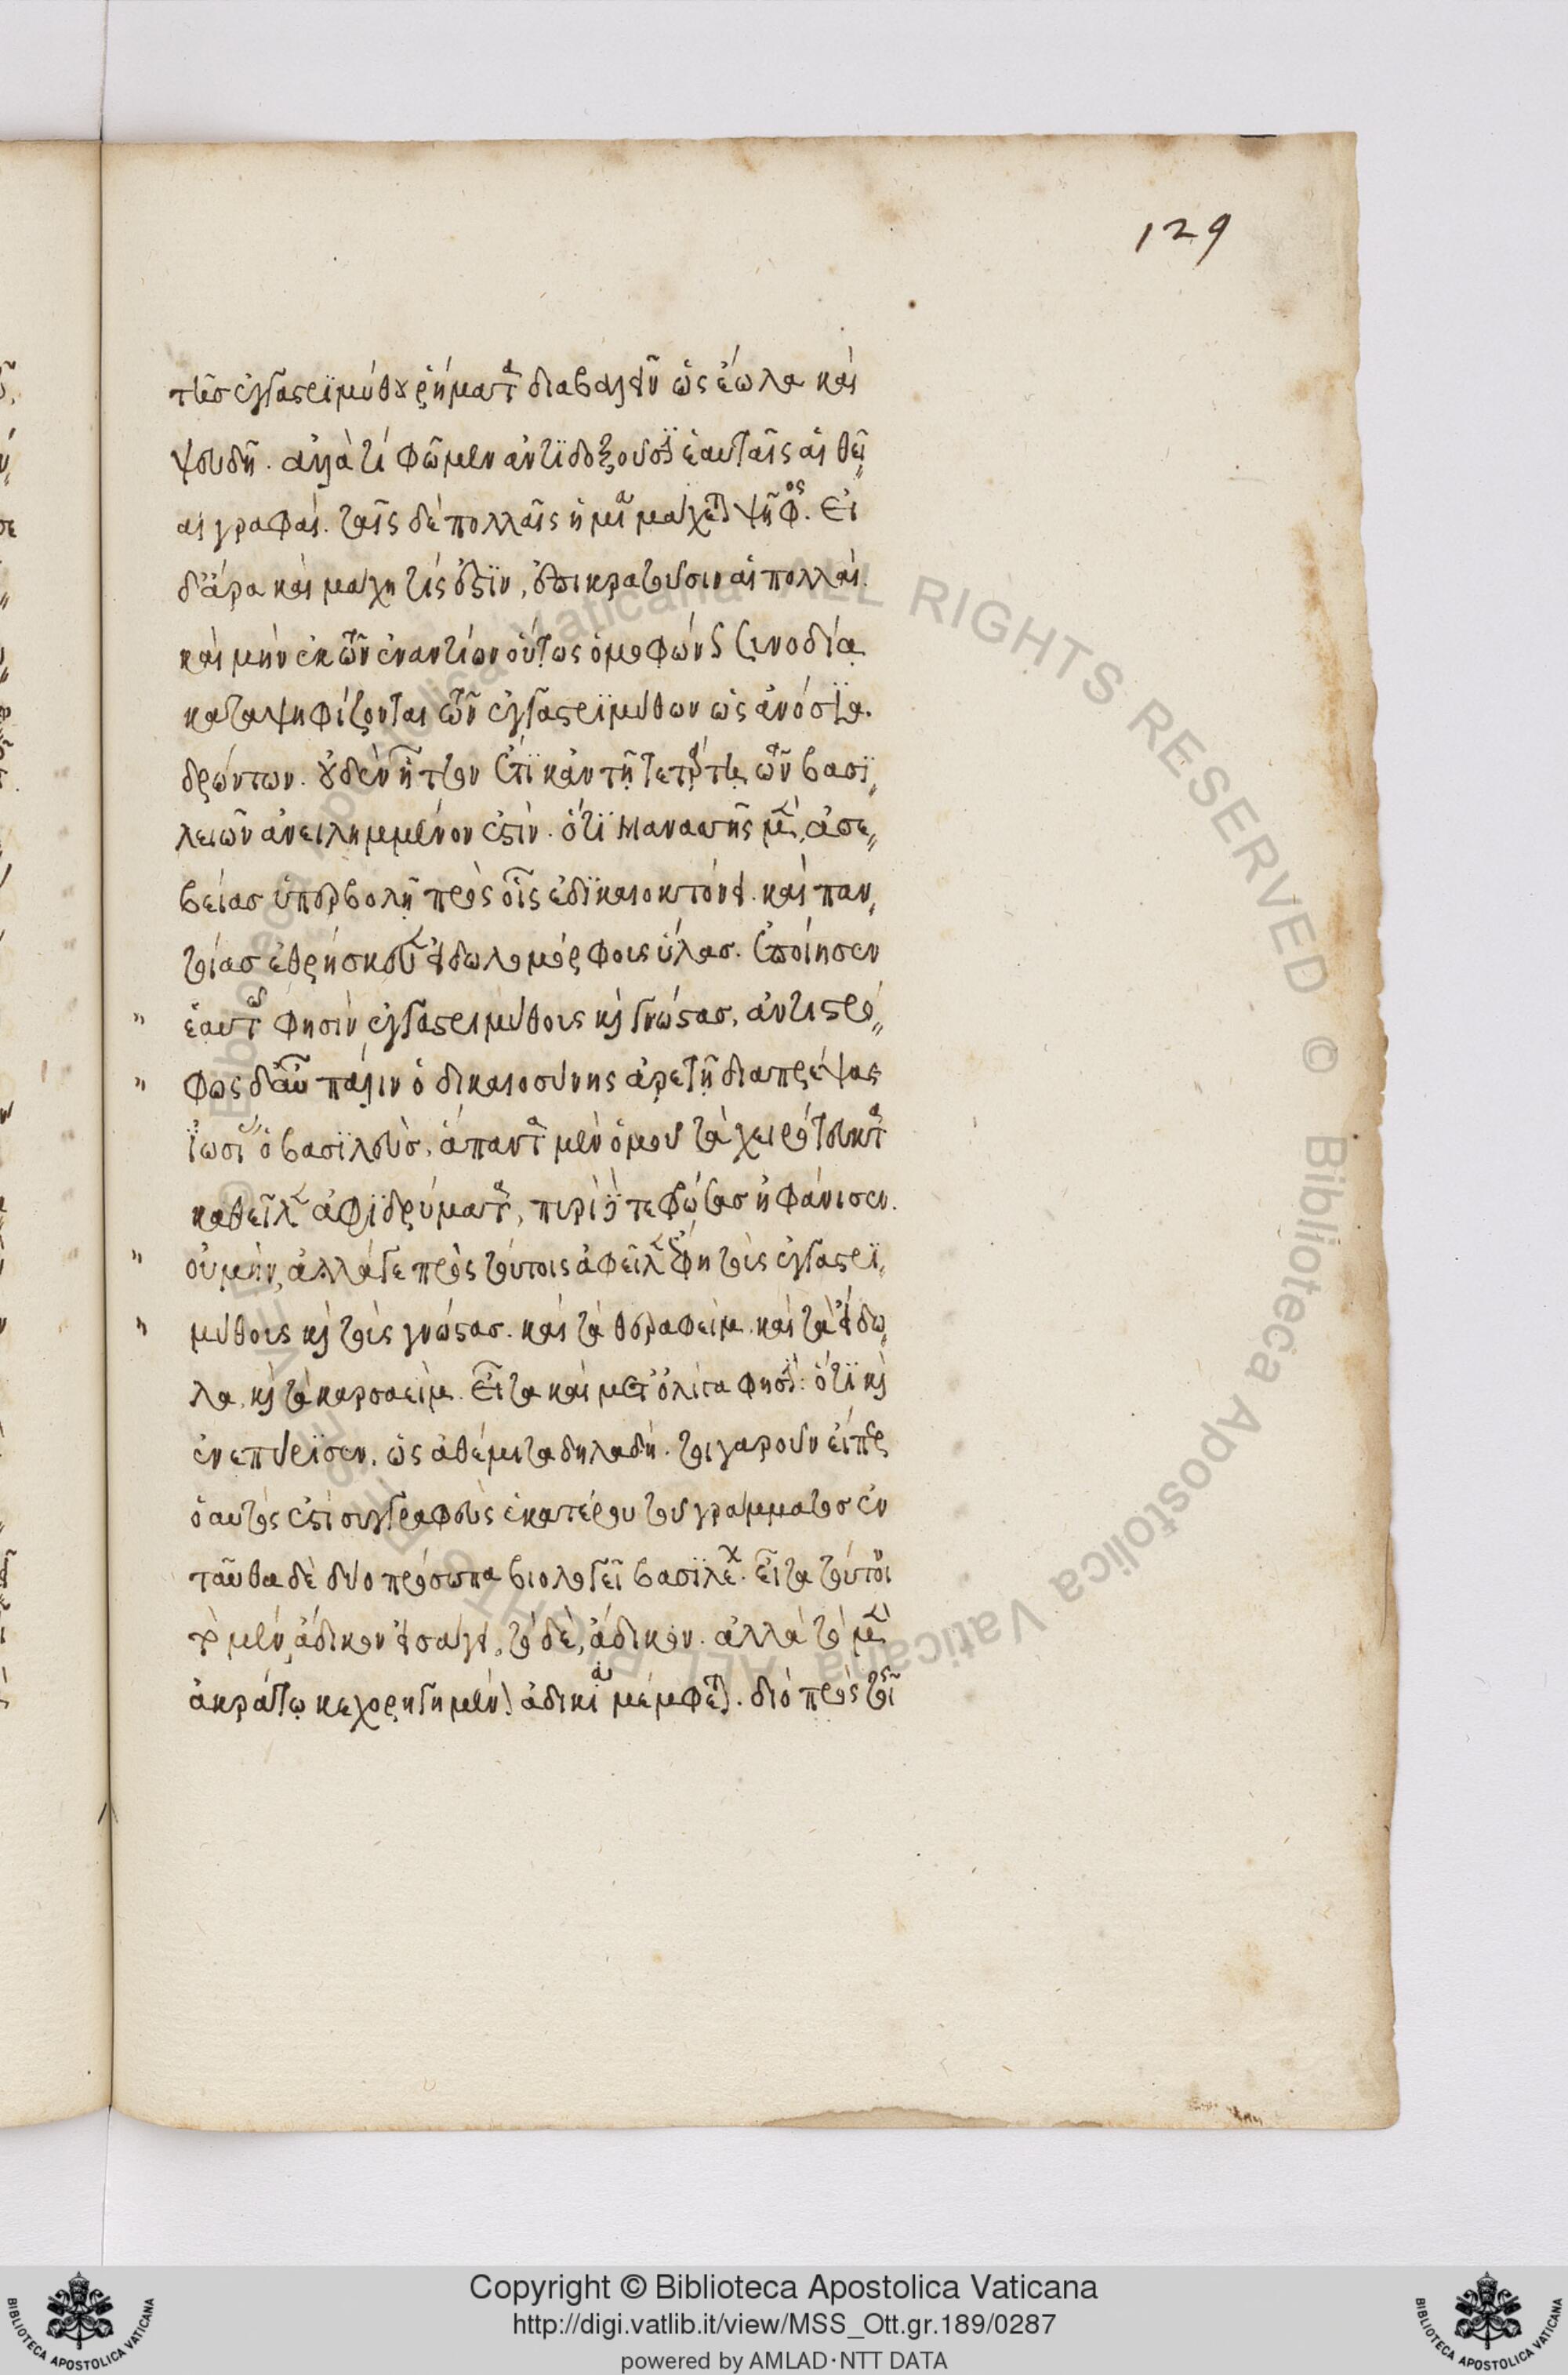 129
τῆς ἐγγαστριμύθου ῥήματα διαβαλεῖν ὡς ἕωλα καὶ
ψευδῆ. ἀλλὰ τί φῶμεν ἀντιδοξοῦσιν ἑαυταῖς αἱ θεῖ
αι γραφαί. ταῖς δὲ πολλαῖς ἡ μία μάχεται ψῆφος. Εἰ
δ' ἄρα καὶ μάχη τίς ἐστιν, ἐπικρατοῦσιν αἱ πολλαί.
καὶ μὴν ἐκ τῶν ἐναντίων οὕτως ὁμοφώνῳ συνοδίᾳ
καταψηφίζονται τῶν ἐγγαστριμύθων ὡς ἀνόσια
δρώντων. οὐδὲν ἧττον ἔτι κἀν τῇ τετάρτῃ τῶν βασι
λειῶν ἀνειλημμένον ἐστίν. ὅτι Μανασσῆς μὲν, ἀσε
βείας ὑπερβολῇ πρὸς οἷς ἐδικαιοκτόνει. καὶ παν
τοίας ἐθρήσκευεν εἰδωλομόρφους ὕλας. ἐποίησεν
ἑαυτῷ φησὶν ἐγγαστριμύθους καὶ γνώστας, ἀντιστρό
φως δ' αὖ πάλιν ὁ δικαιοσύνης ἀρετῇ διαπρέψας
Ἰωσίας ὁ βασιλεὺς, ἅπαντα μὲν ὁμοῦ τὰ χειρότευκτα
καθεῖλεν ἀφιδρύματα, περιόντας ἠφάνισεν.
οὐ μὴν, ἀλλά γε πρὸς τούτοις ἀφεῖλεν ἔφη τοὺς ἐγγαστρι
μύθους καὶ τοὺς γνώστας. καὶ τὰ θεραφεὶμ, καὶ τὰ εἴδω
λα, καὶ τὰ καρσαεὶμ. Εἶτα καὶ μετ' ὀλίγα φησίν: ὅτι καὶ
ἐνεπύρισεν, ὡς ἀθέμιτα δηλαδή. τοιγαροῦν εἴπερ
ὁ αὐτός ἐστι συγγραφεὺς ἑκατέρου τοῦ γράμματος ἐν
ταῦθα δὲ δύο πρόσωπα βιολογεῖ βασιλέων. εἶτα τούτοιν
τὸ μὲν, ἄδικον εἰσάγει, τὸ δὲ, ἄδικον. ἀλλὰ τὸ μὲν
ἀκράτῳ κεχορηγημένον ἀδικίᾳ μέμφεται. διὸ πρὸς τοῖς
Copyright © Biblioteca Apostolica Vaticana
http://digi.vatlib.it/view/MSS_Ott.gr.189/0287
powered by AMLAD·NTT DATA